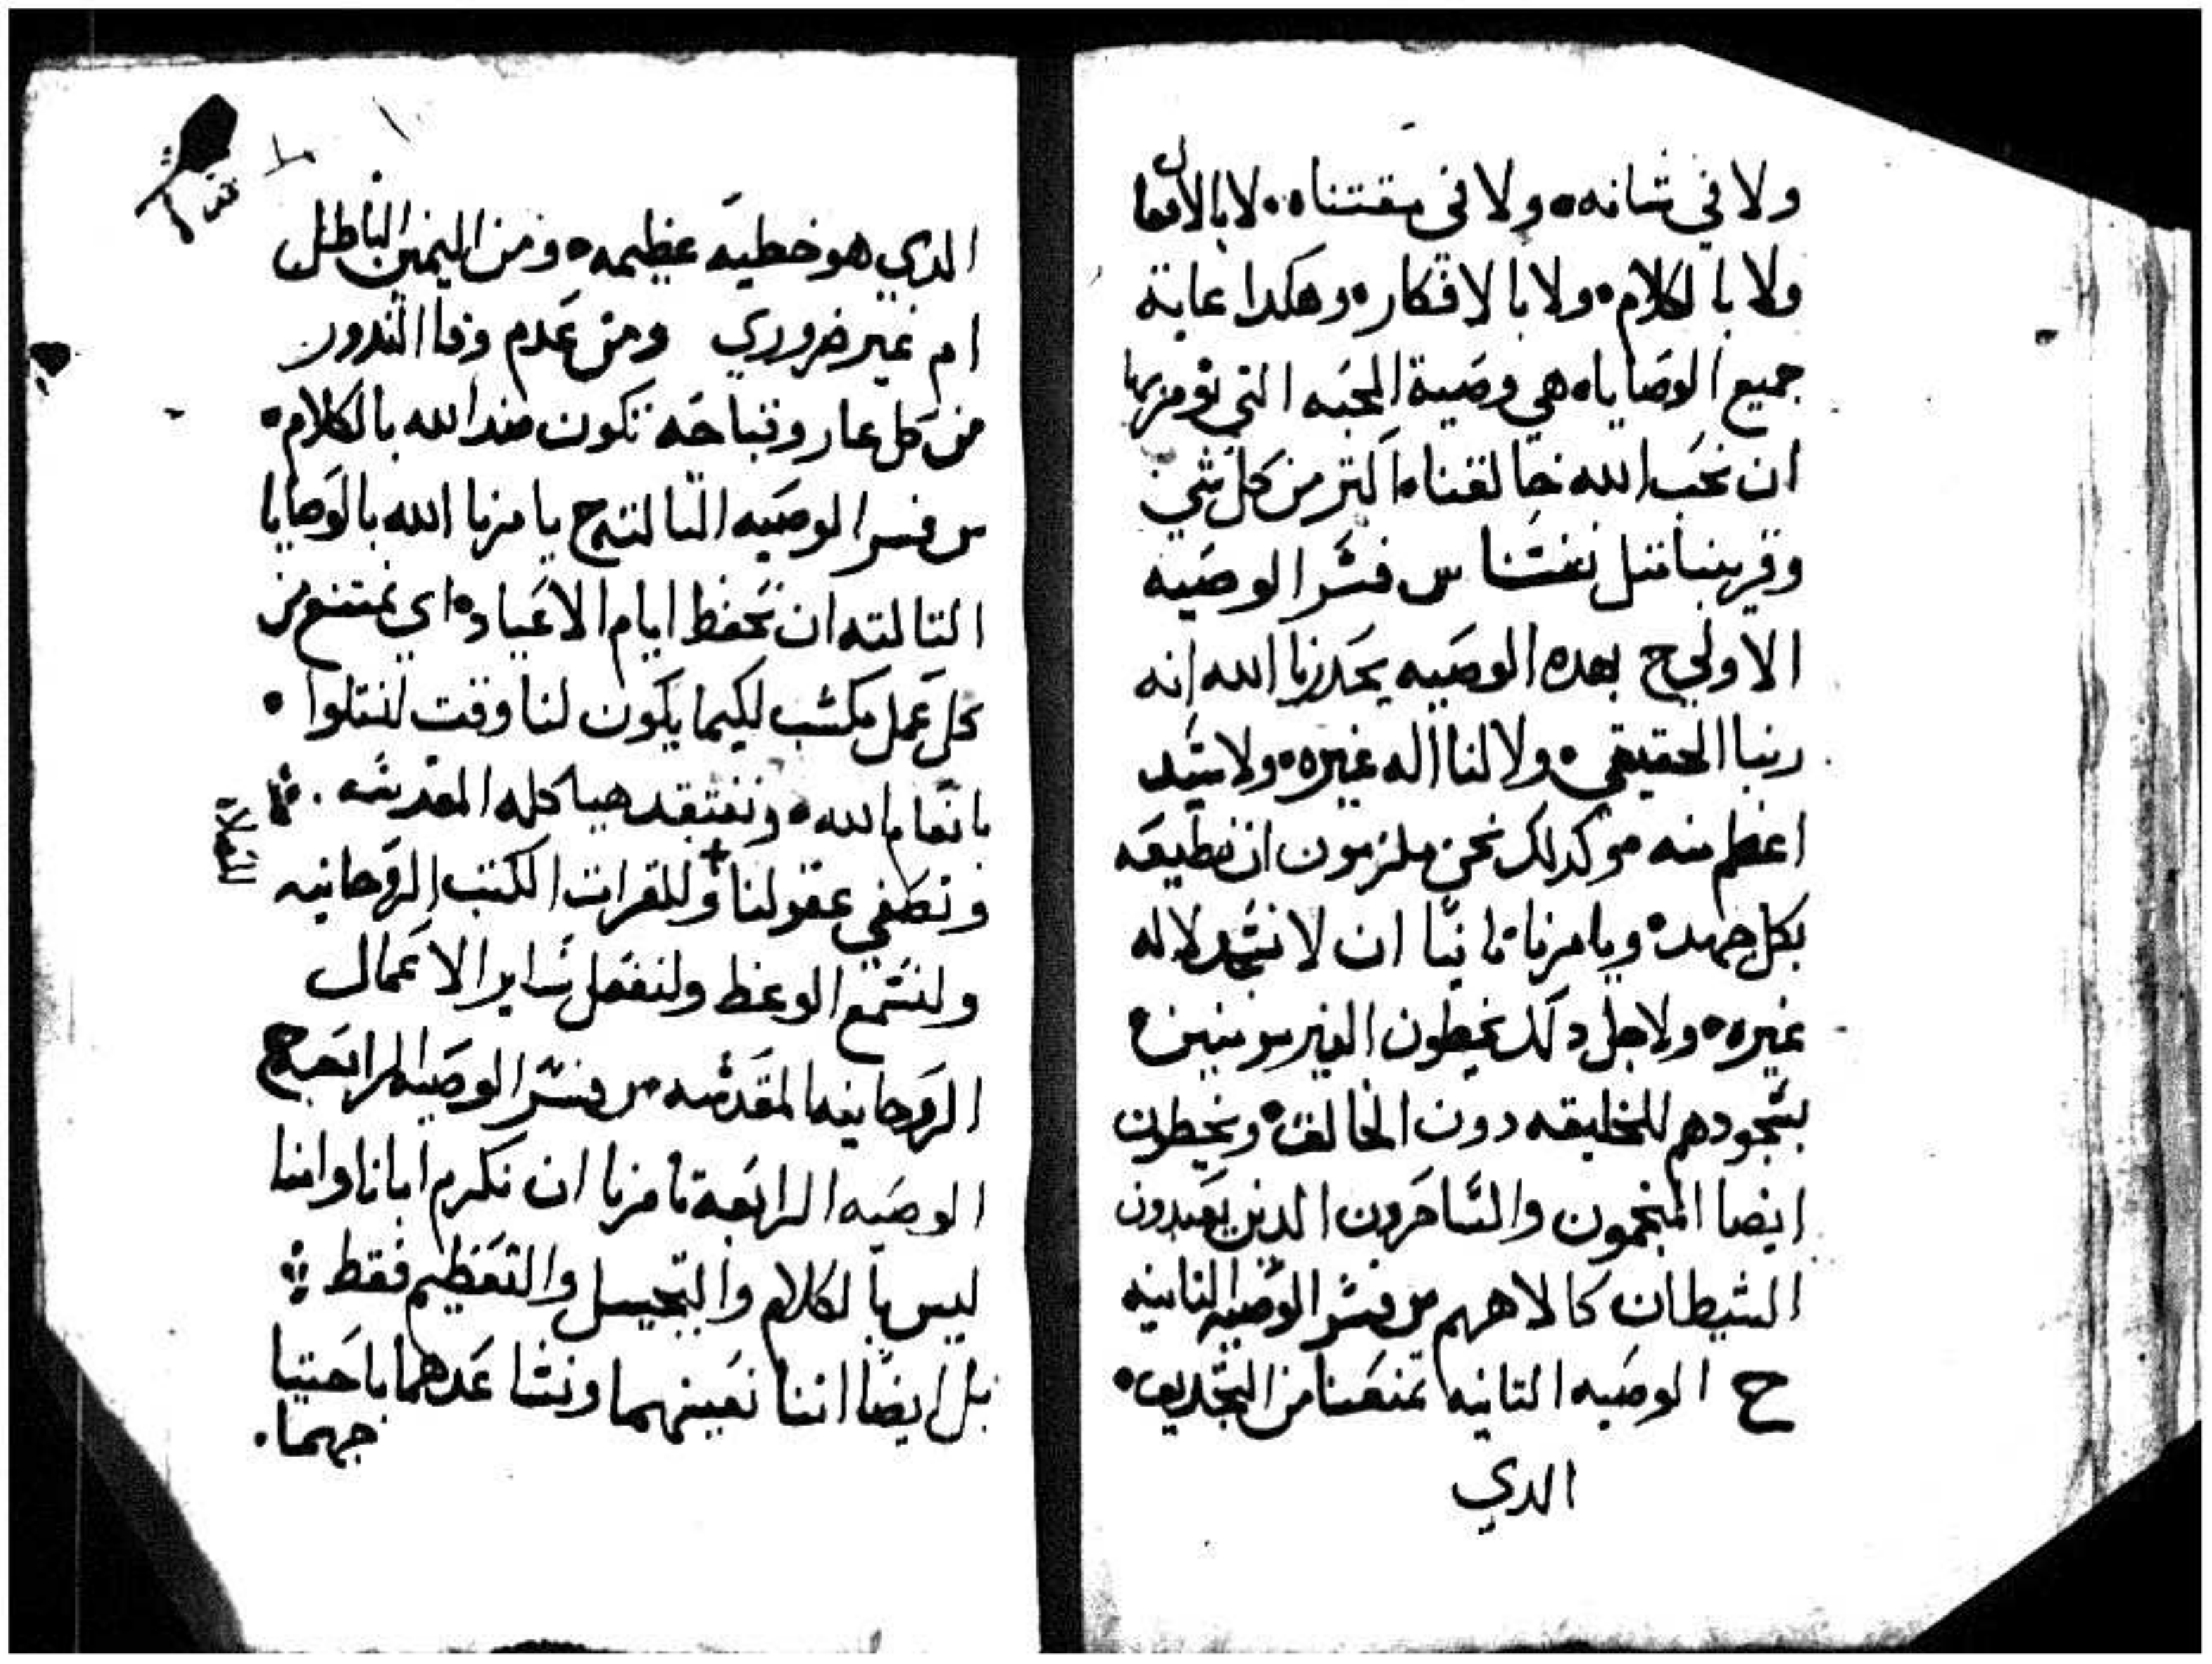 ولا في شانه ولا في مقتناه لا بالافعال
ولا بالكلام ولا بالافكار وهكدا غاية
جميع الوصايا هي وصية المحبه التي تومرنا
ان نحب الله خالقنا اكتر من كل شي
وقريبنا متل نفسنا س فسر الوصيه
الاولي ج بهده الوصيه يحدرنا الله انه
ربنا الحقيقي ولا لنا اله غيره ولا سيد
اعظم منه وكدلك نحن ملزمون ان نطيعه
بكل جهد ويامرنا تانيا ان لا نسجد لاله
غيره ولاجل دلك يخطون الغير مومنين
بسجودهم للخليقه دون الخالق ويخطون
ايضا المنجمون والساحرون الدين يعبدون
الشيطان كالاههم س فسر الوصيه التانيه
ج الوصيه التانيه تمنعنا من التجديف
الدي
الدي هو خطيه عظيمه ومن اليمين الباطل
ام غير ضروري ومن عدم وفا الندور
من كل عار وقباحه تكون ضد الله بالكلام
س فسر الوصيه التالته ج يامرنا الله بالوصايا
التالته ان نحفظ ايام الاعياد اي نمتنع من
كل عمل مكسب لكيما يكون لنا وقت لنتلوا
بانعام الله ونفتقد هياكله المقدسه
ونصفي عقولنا وللقرات الكتب الروحانيه
ولنسمع الوعظ ولنفعل ساير الاعمال
الروحانيه المقدسه س فسر الوصيه الرابعه ج
الوصيه الرابعة تامرنا ان نكرم ابانا وامنا
ليس بالكلام والتبجيل والتعظيم فقط
بل ايضا اننا نعينهما ونساعدهما باحتيا
جهما